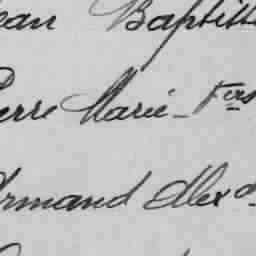 ean Baptist
ierre Marie - Fçois
Armand Alexd